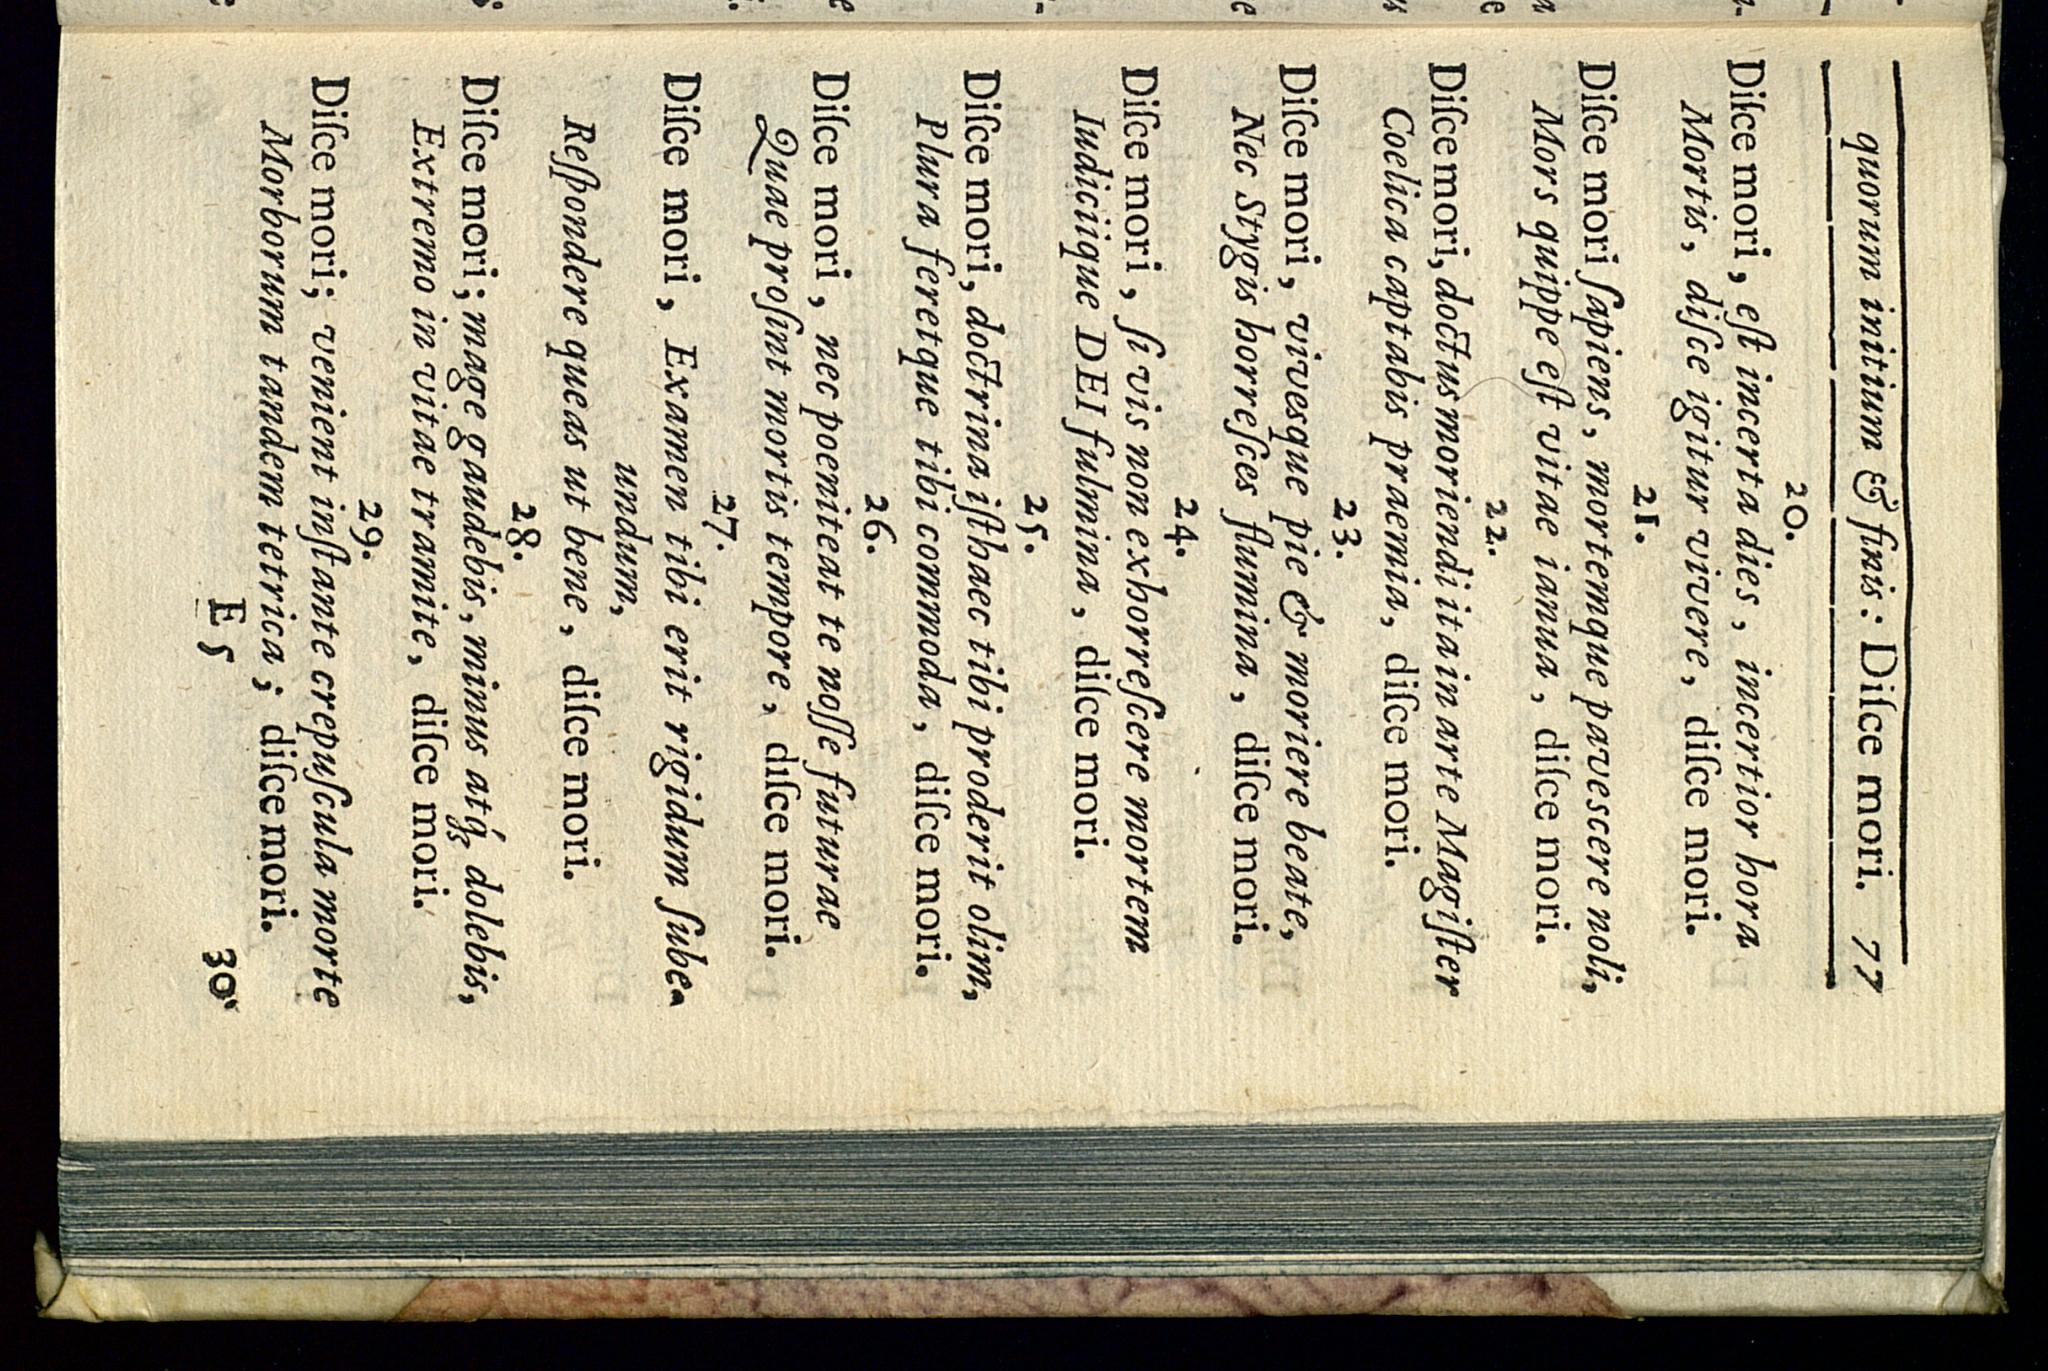 quorum initium & finis: Diſce mori. 77
20.
Diſce mori, eſt incerta dies, incertior hora
Mortis, diſce igitur vivere, diſce mori.
21.
Diſce mori ſapiens, mortemque paveſcere noli,
Mors quippe eſt vitae ianua, diſce mori.
22.
Diſce mori, doctus moriendi ita in arte Magiſter
Coelica captabis praemia, diſce mori.
23.
Diſce mori, vivesque pie & moriere beate,
Nec Stygis horreſces flumina, diſce mori.
24.
Diſce mori, ſi vis non exhorreſcere mortem
Iudiciique DEI fulmina, diſce mori.
25.
Diſce mori, doctrina iſthaec tibi proderit olim,
Plura feretque tibi commoda, diſce mori.
26.
Diſce mori, nec poeniteat te noſſe futurae
Quae proſint mortis tempore, diſce mori.
27.
Diſce mori, Examen tibi erit rigidum ſube-
undum,
Reſpondere queas ut bene, diſce mori.
28.
Diſce mori; mage gaudebis, minus atq́; dolebis,
Extremo in vitae tramite, diſce mori.
29.
Diſce mori; venient inſtante crepuſcula morte
Morborum tandem tetrica; diſce mori.
E 5 30.